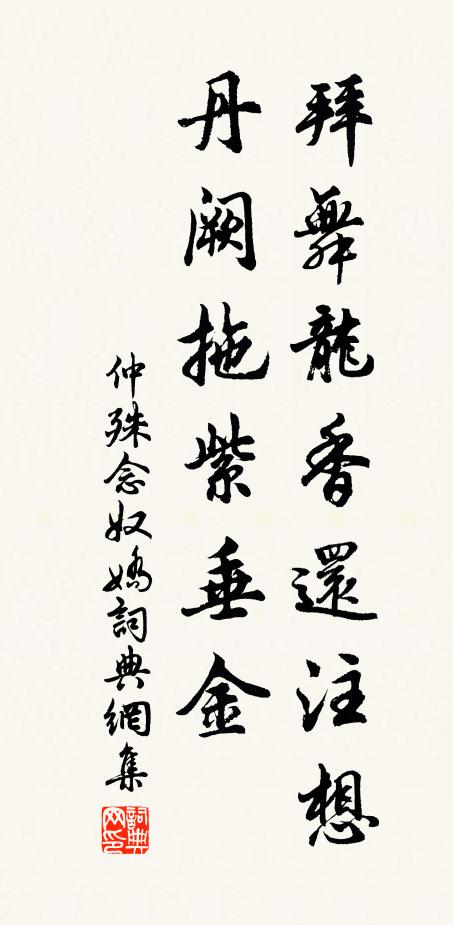 拜舞龍香還注想
丹闕拖紫垂金
仲殊念奴嬌詞典網集
詞典网印